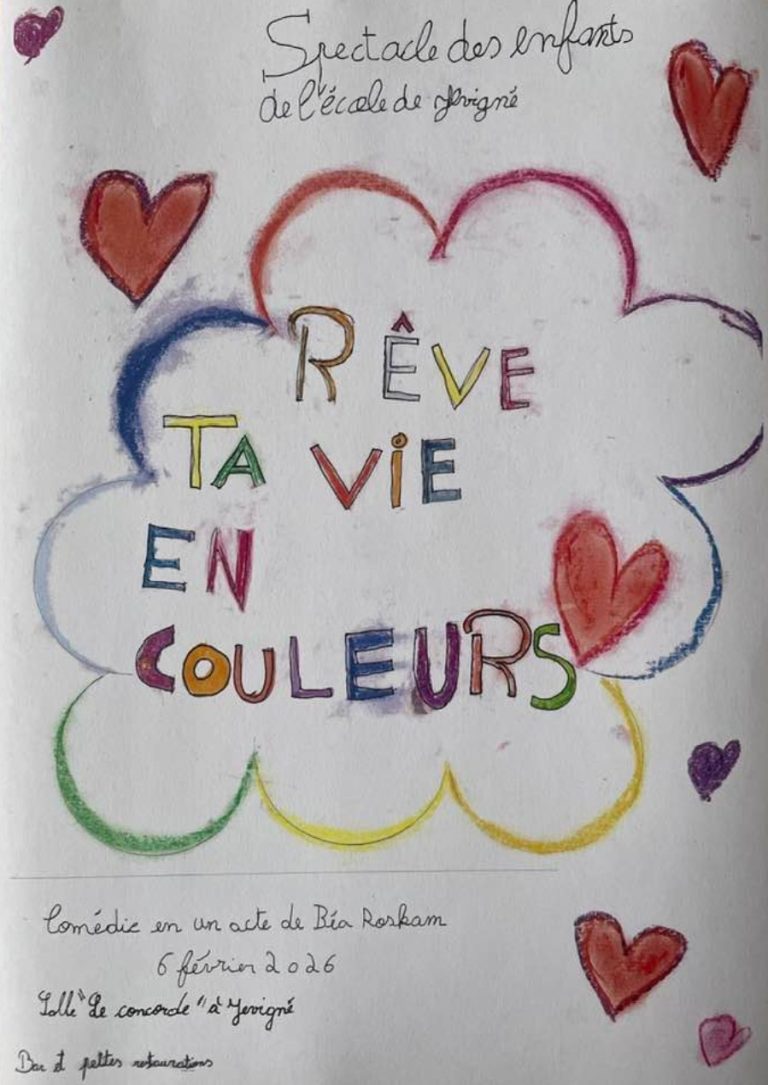 Spectacle des enfants
de l'école de Jevigné
RÊVE
TA VIE
EN
COULEURS
Comédie en un acte de Béa Roskam
6 février 2026
Salle "Le concorde" à Jevigné
Bar et petites restaurations